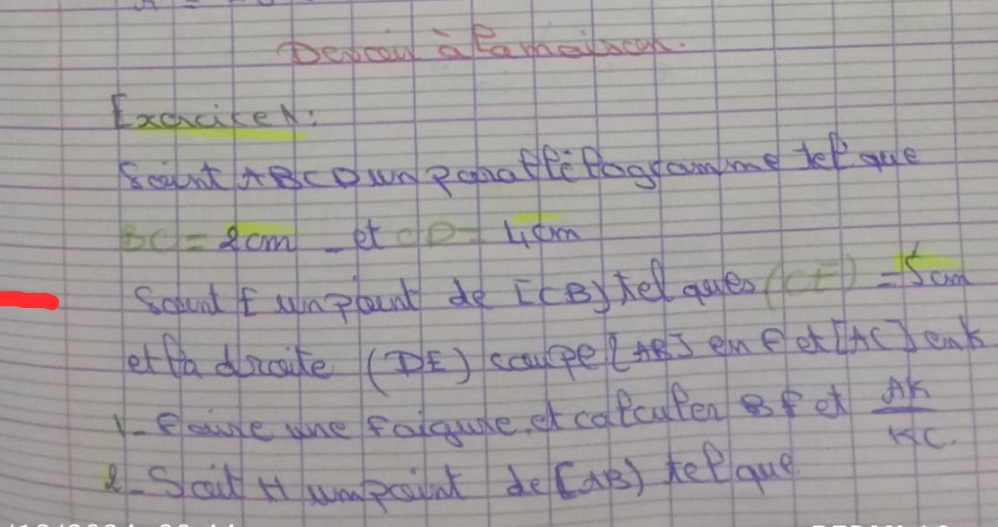 Devoir à la maison.
Exercice 1:
Soint ABCD un parallélogramme tel que
BC = 2cm et CD = 4cm
Soint E un point de [CB) tel ques (CE) = 5cm
et la droite (DE) coupe [AB] en F et [AC] en K
1- Faire une faigure, et calculer BF et AK/KC.
2- Soit H un point de [AB) tel que